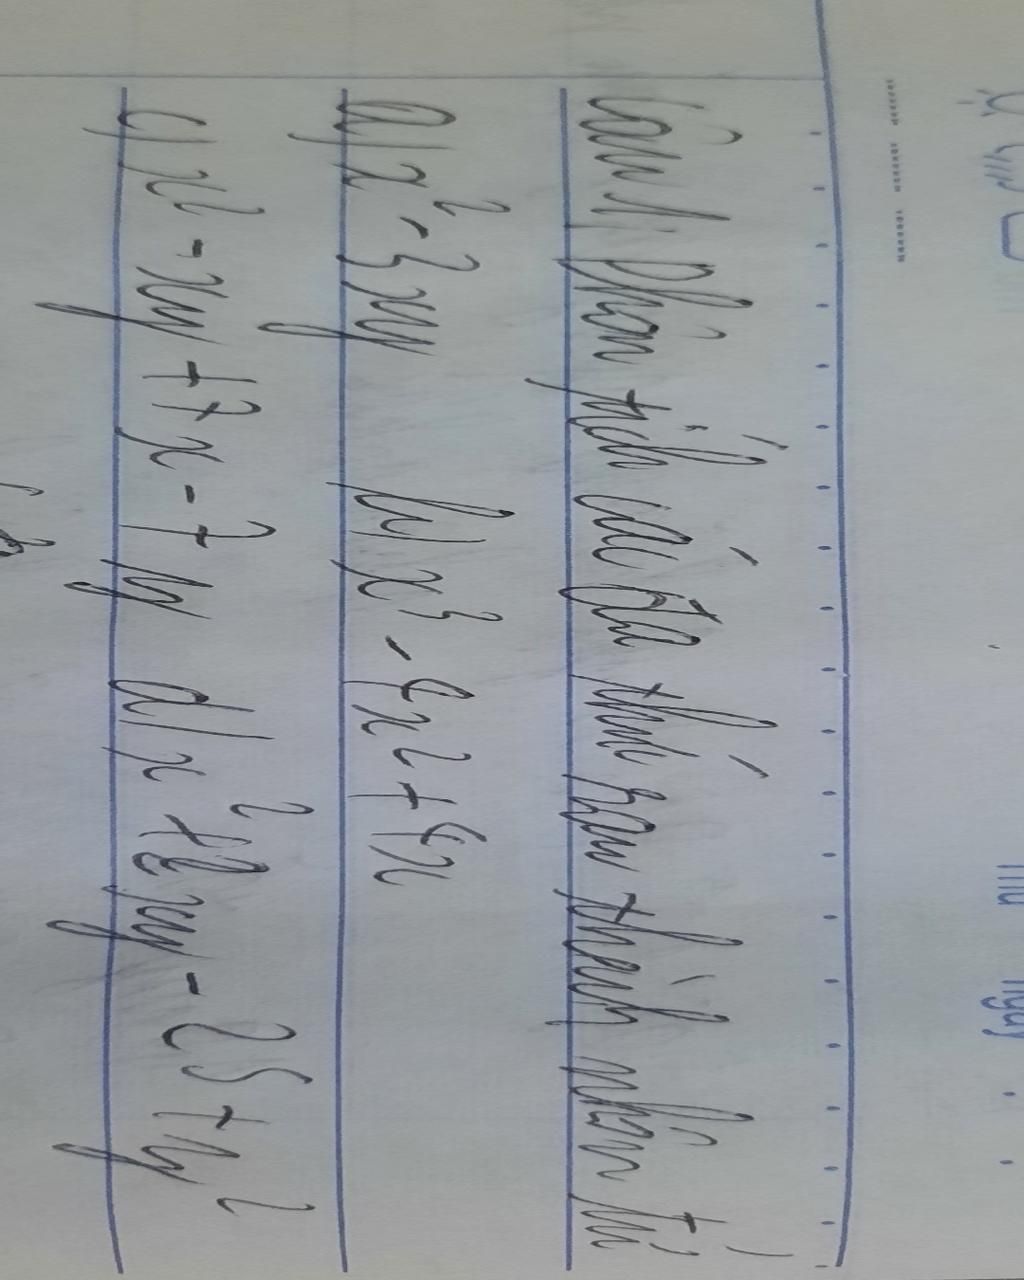 Thứ ngày
Câu 1: Phân tích các đa thức sau thành nhân tử
a) x² - 3xy b) x³ - 4x² + 4x
c) x² - xy + 7x - 7y d) x² + 2xy - 25 + y²